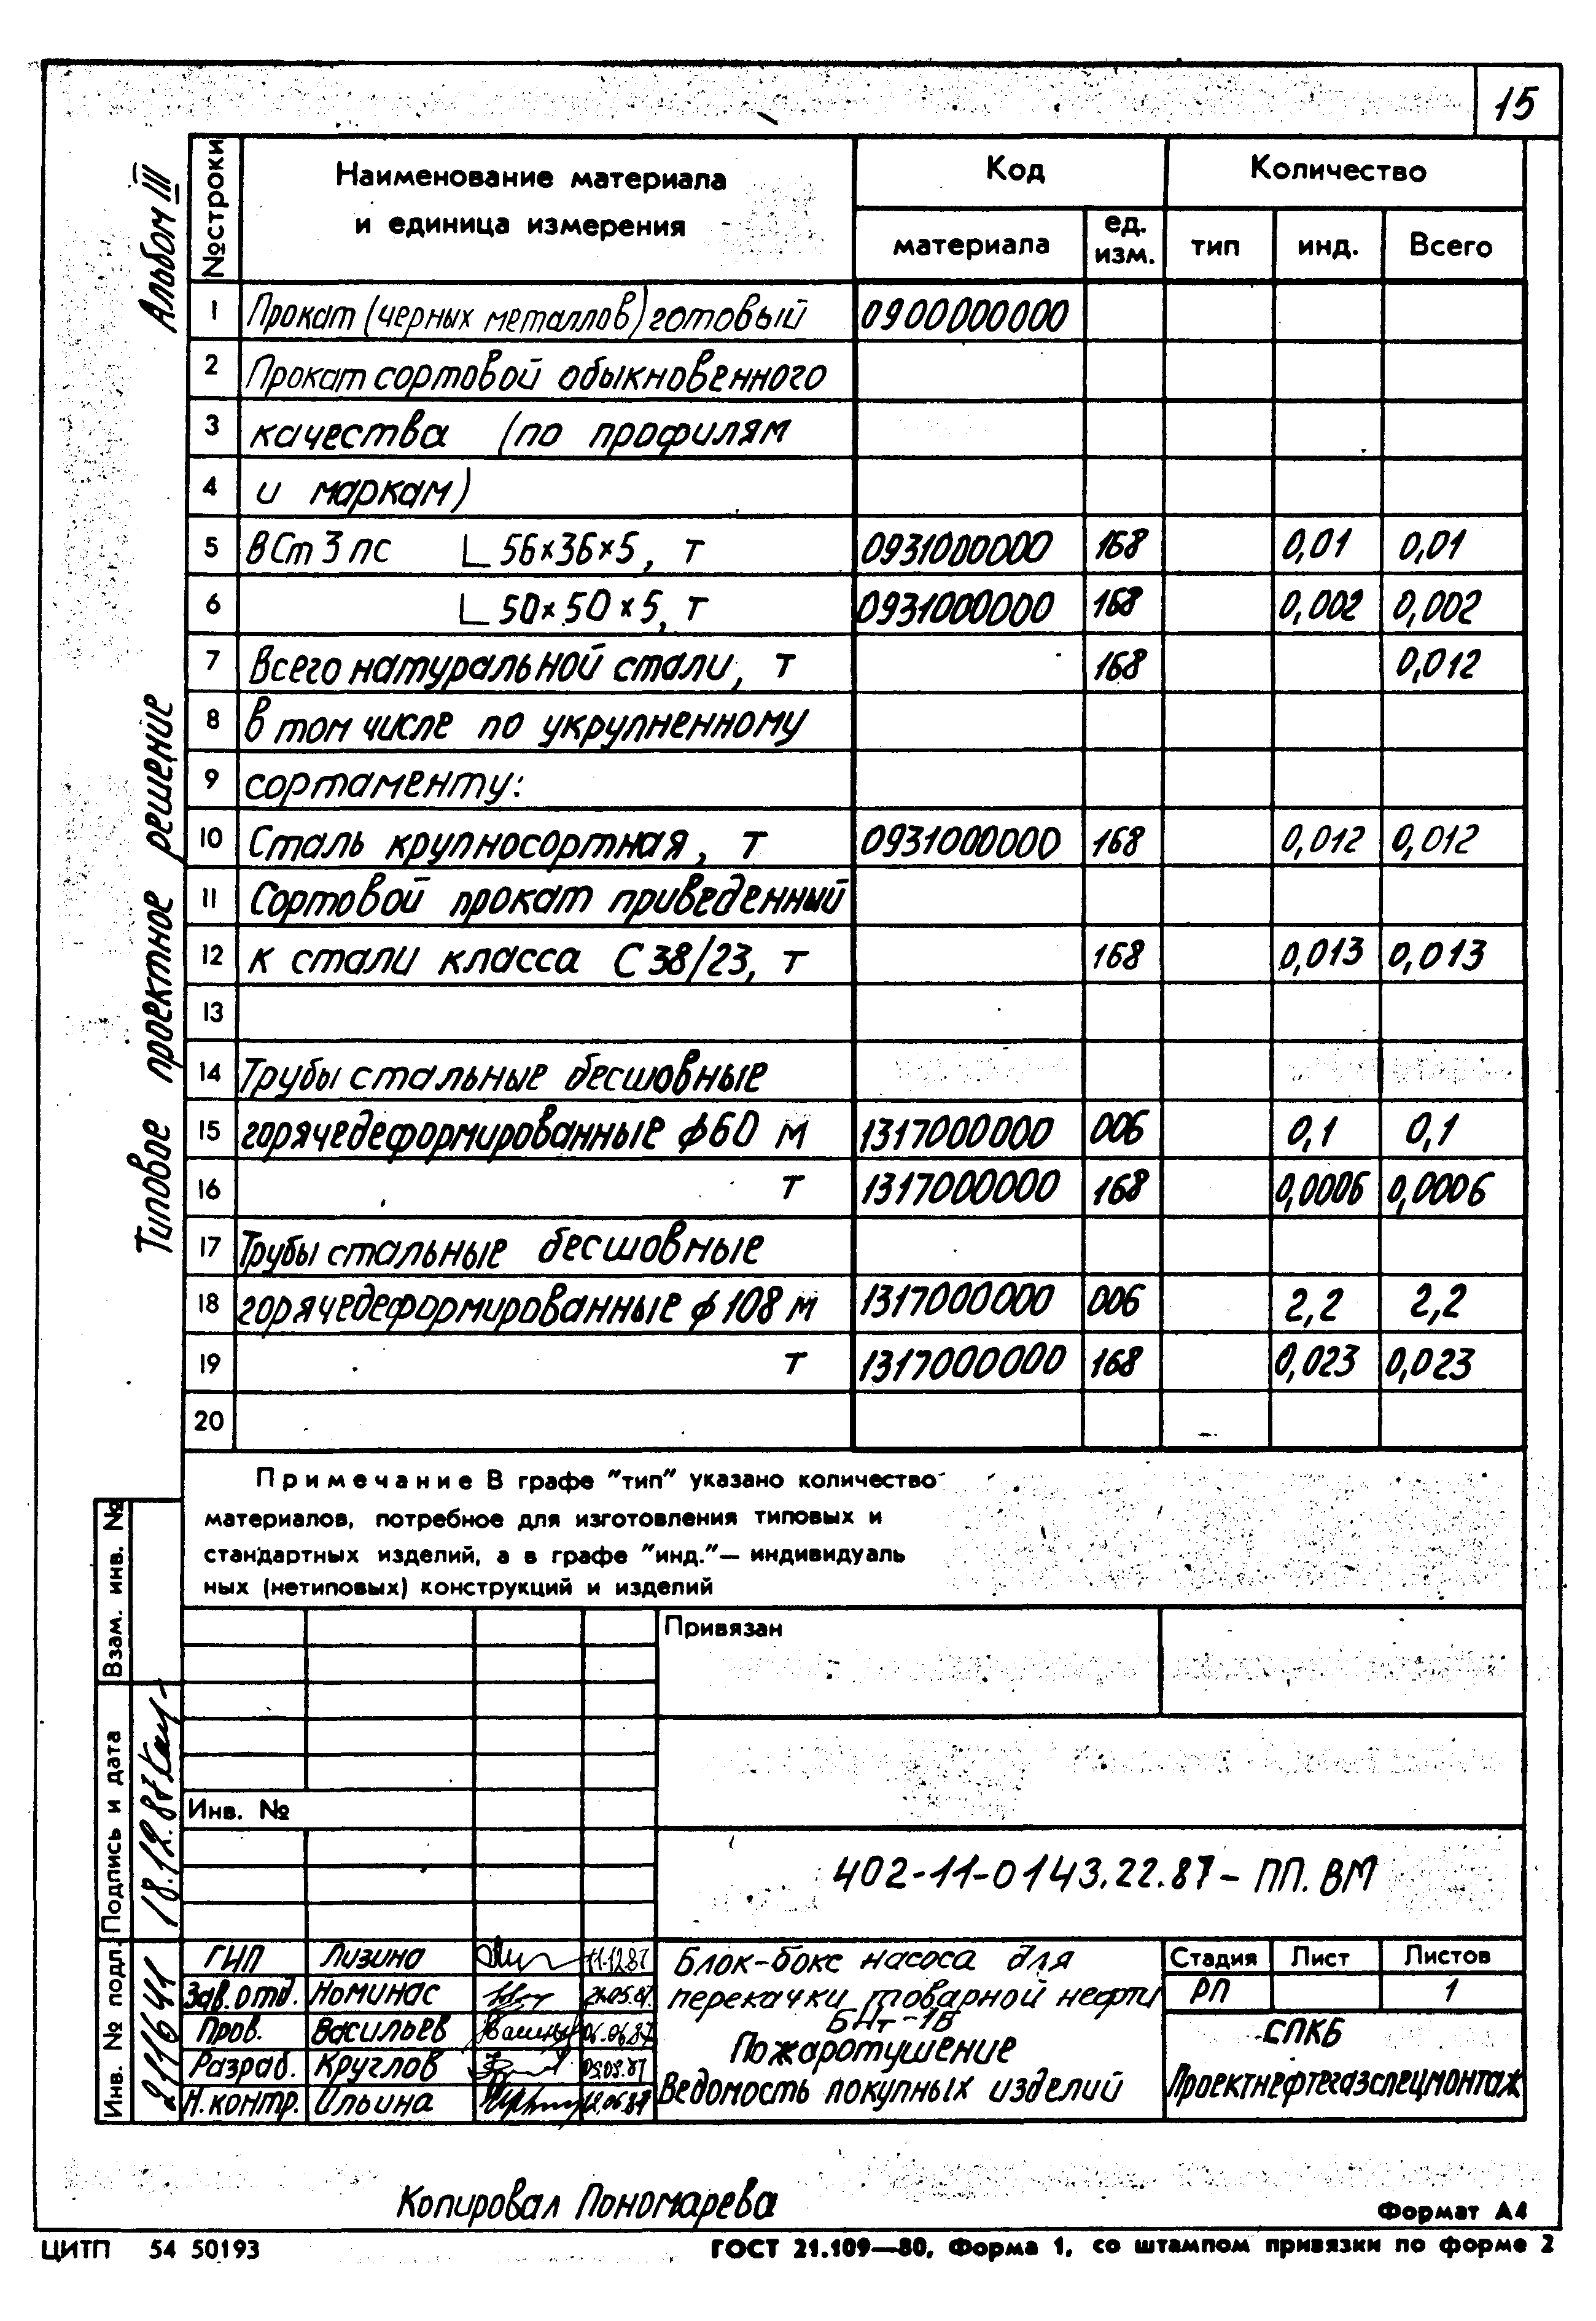 15
Альбом III
Типовое проектное решение
№ строки
Наименование материала
и единица измерения
Код
Количество
материала
ед.
изм.
тип
инд.
Всего
1 Прокат (черных металлов) готовый 0900000000
2 Прокат сортовой обыкновенного
3 качества (по профилям
4 и маркам)
5 ВСт3пс ∟56×36×5, т 0931000000 168 0,01 0,01
6 ∟50×50×5, т 0931000000 168 0,002 0,002
7 Всего натуральной стали, т 168 0,012
8 в том числе по укрупненному
9 сортаменту:
10 Сталь крупносортная, т 0931000000 168 0,012 0,012
11 Сортовой прокат приведенный
12 к стали класса С38/23, т 168 0,013 0,013
13
14 Трубы стальные бесшовные
15 горячедеформированные ф60 м 1317000000 006 0,1 0,1
16 т 1317000000 168 0,0006 0,0006
17 Трубы стальные бесшовные
18 горячедеформированные ф108 м 1317000000 006 2,2 2,2
19 т 1317000000 168 0,023 0,023
20
Примечание В графе "тип" указано количество
материалов, потребное для изготовления типовых и
стандартных изделий, а в графе "инд."— индивидуаль
ных (нетиповых) конструкций и изделий
Взам. инв. №
Подпись и дата
18.12.87
Инв. № подл.
Привязан
Инв. №
402-11-0143.22.87-ПП.ВМ
ГИП Лизина 11.12.87
Зав. отд. Номинас
Пров. Васильев 04.06.87
Разраб. Круглов
Н.контр. Ильина
Блок-бокс насоса для
перекачки товарной нефти
БНт-1В
Пожаротушение
Ведомость покупных изделий
Стадия Лист Листов
РП 1
СПКБ
Проектнефтегазспецмонтаж
Копировал Пономарева
Формат А4
ЦИТП 54 50193
ГОСТ 21.109—80, Форма 1, со штампом привязки по форме 2